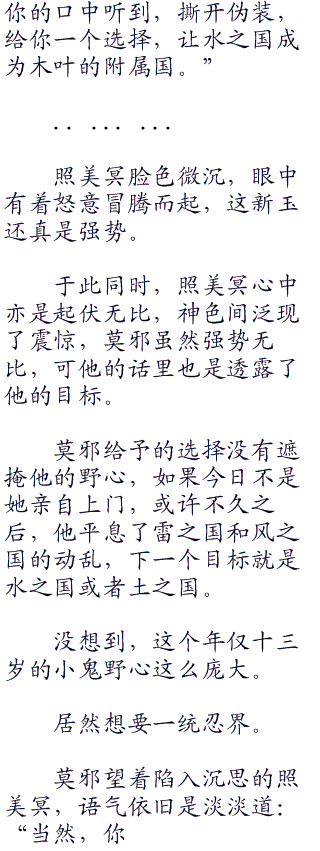 你的口中听到，撕开伪装，
给你一个选择，让水之国成
为木叶的附属国。”
.. ... ...
照美冥脸色微沉，眼中
有着怒意冒腾而起，这新玉
还真是强势。
于此同时，照美冥心中
亦是起伏无比，神色间泛现
了震惊，莫邪虽然强势无
比，可他的话里也是透露了
他的目标。
莫邪给予的选择没有遮
掩他的野心，如果今日不是
她亲自上门，或许不久之
后，他平息了雷之国和风之
国的动乱，下一个目标就是
水之国或者土之国。
没想到，这个年仅十三
岁的小鬼野心这么庞大。
居然想要一统忍界。
莫邪望着陷入沉思的照
美冥，语气依旧是淡淡道：
“当然，你